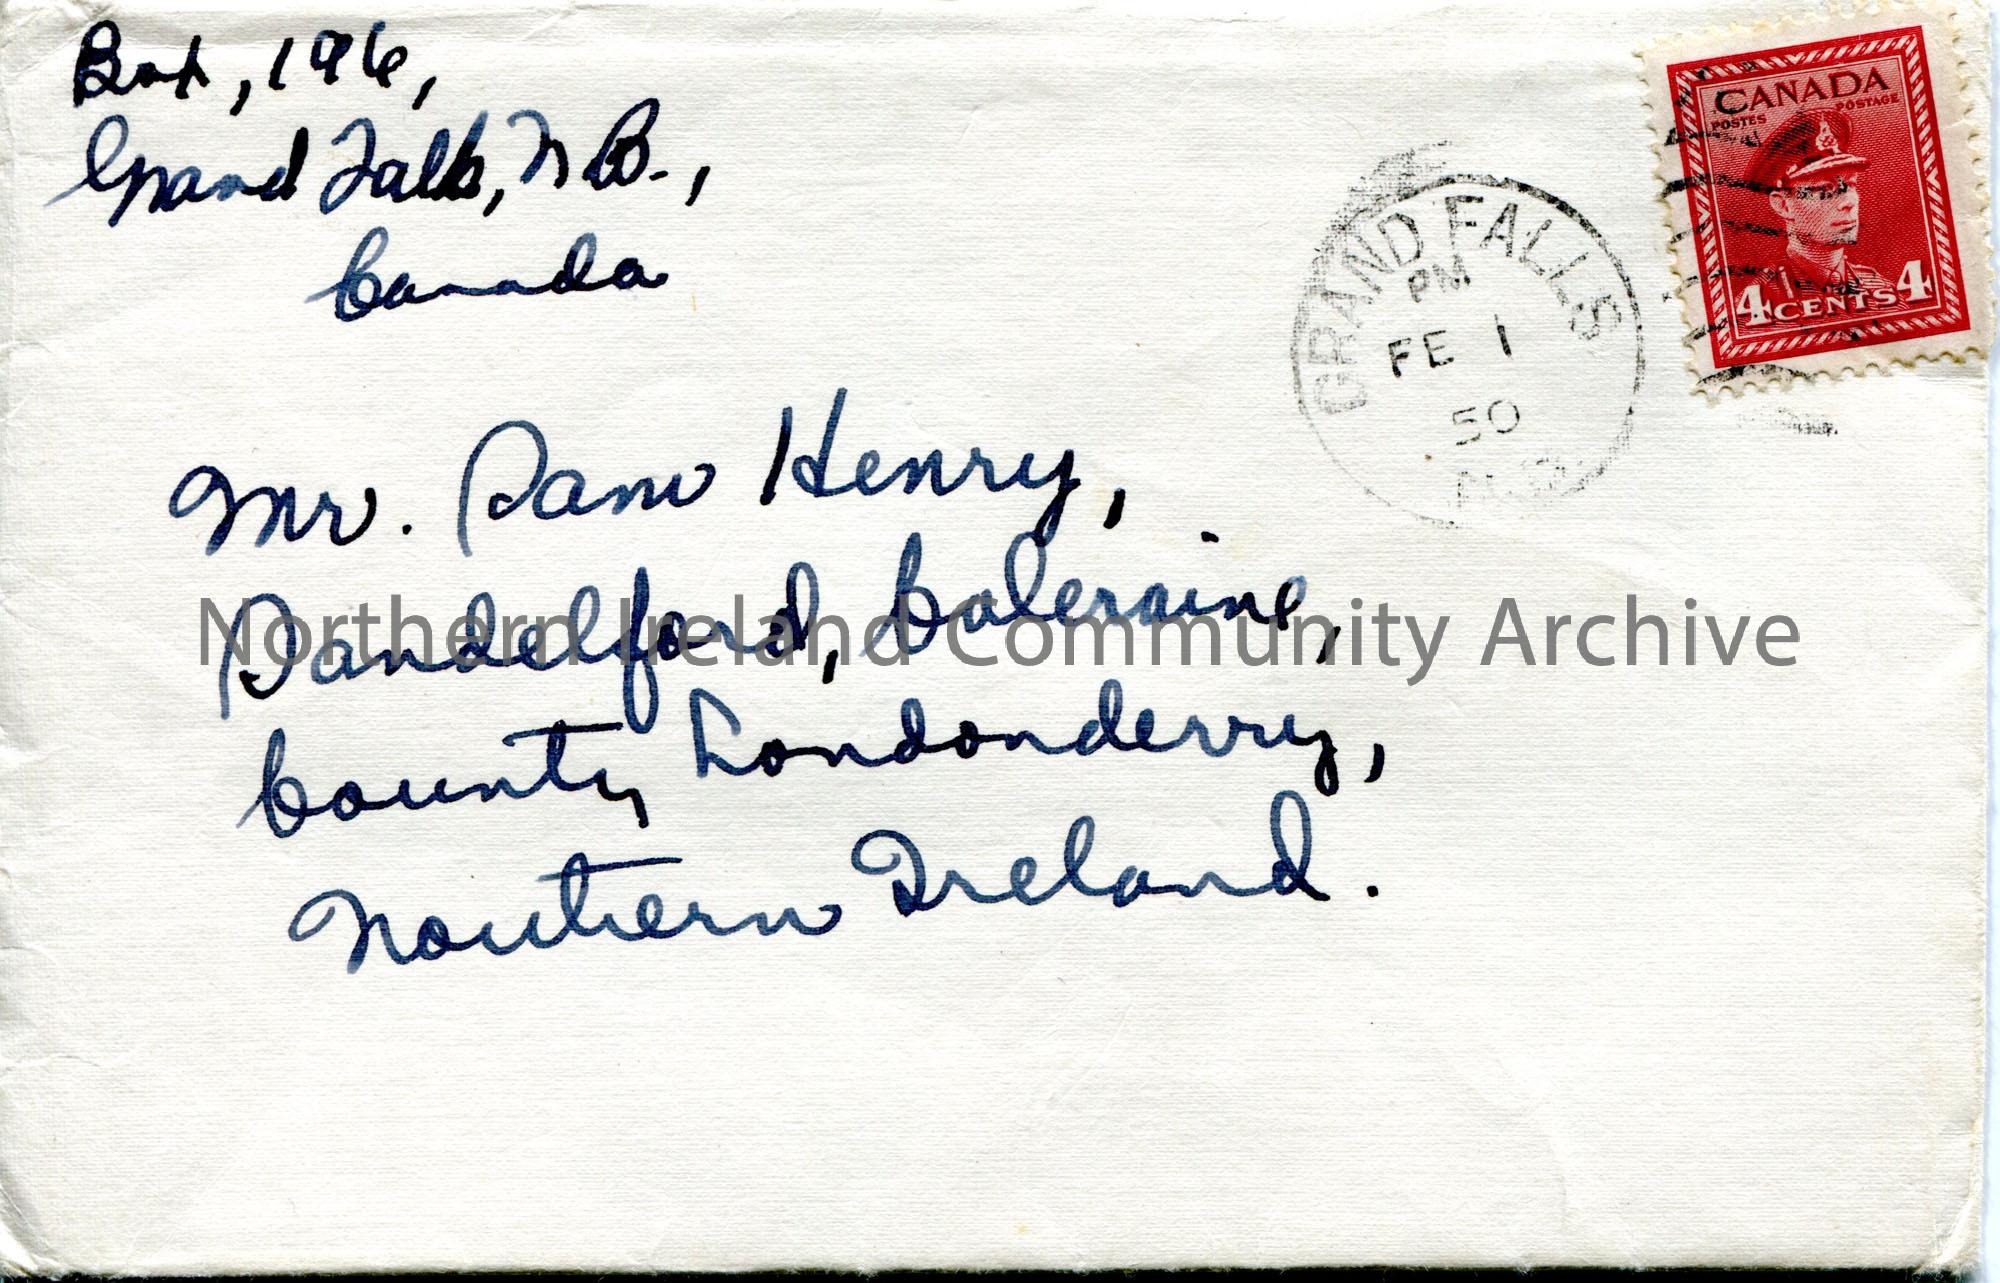 Box, 196,
Grand Falls, N.B.,
Canada
CANADA
POSTES POSTAGE
4 CENTS 4
GRAND FALLS
PM
FE 1
50
Mr. Sam Henry,
Sandelford, Coleraine,
County Londonderry,
Northern Ireland.
Northern Ireland Community Archive